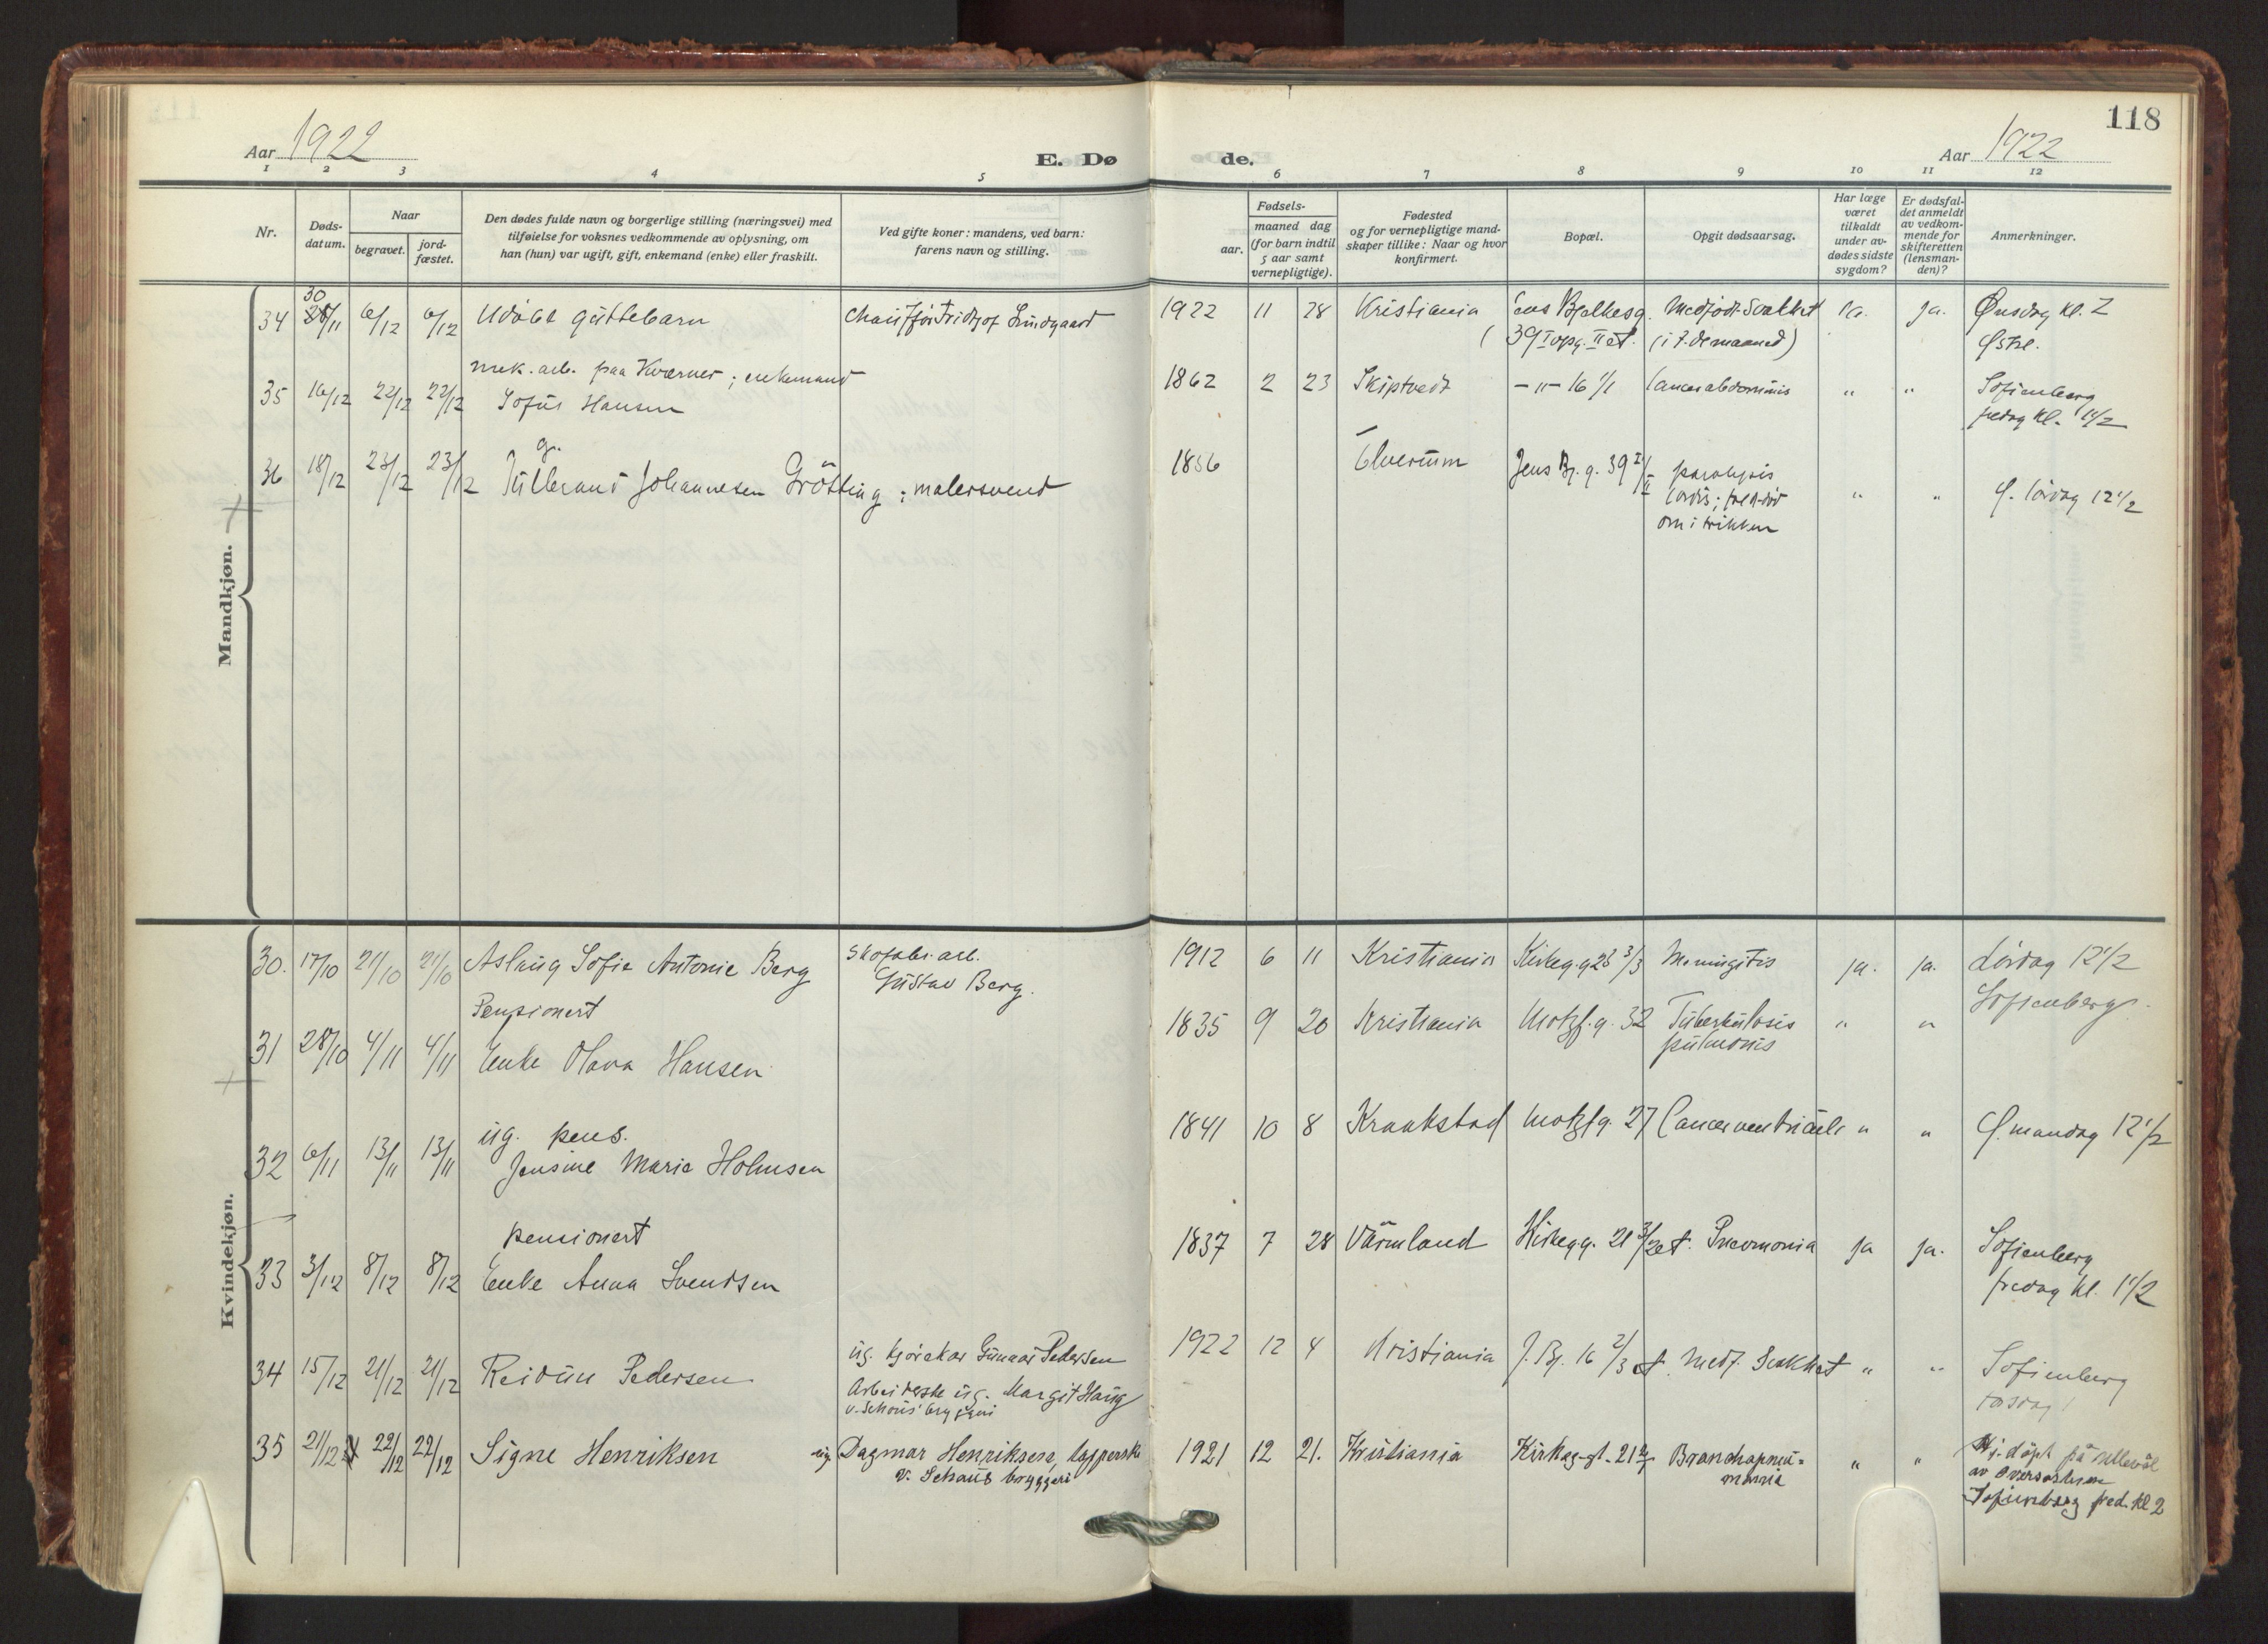 118
Aar 1922
E. Dø
de.
Aar 1922
1 2 3 4 5 6 7 8 9 10 11 12
Nr.
Døds-
datum.
Naar
begravet.
jord-
fæstet.
Den dødes fulde navn og borgerlige stilling (næringsvei) med
tilføielse for voksnes vedkommende av oplysning, om
han (hun) var ugift, gift, enkemand (enke) eller fraskilt.
Ved gifte koner: mandens, ved barn:
farens navn og stilling.
Fødsels-
aar.
maaned dag
(for barn indtil
5 aar samt
vernepligtige).
Fødested
og for vernepligtige mand-
skaper tillike: Naar og hvor
konfirmert.
Bopæl.
Opgit dødsaarsag.
Har læge
været
tilkaldt
under av-
dødes sidste
sygdom?
Er dødsfal-
det anmeldt
av vedkom-
mende for
skifteretten
(lensman-
den)?
Anmerkninger.
Mandkjøn.
30
34 28/11 6/12 6/12 Udøbt guttebarn Chauffør Fridtjof Lundgaard 1922 11 28 Kristiania Jens Bjelkesg. Medfødt Svakhet Ja. Ja. Onsdag kl. 2
39 I opg. II et. (i 7. de maaned) Østre.
mek. arb. paa Kværner; enkemand
35 16/12 22/12 22/12 Sofus Hansen 1862 2 23 Skiptvedt – " – 16 1/1 Cancer abdominis " " Sofienberg
fredag kl. 1 1/2
g.
36 18/12 23/12 23/12 Gulbrand Johannesen Grötting; malersvend 1856 Elverum Jens Bj. g. 39 I/II paralysis
cordis; faldt død " " Ø. lørdag 12 1/2
om i trikken
Kvindekjøn.
30. 17/10 21/10 21/10 Aslaug Sofie Antonie Berg Skofabr. arb. 1912 6 11 Kristiania Kirkeg. g 28 3/3 Meningitis ja. ja. Lørdag 12 1/2
Gustav Berg. Sofienberg.
Pensionert
31 28/10 4/11 4/11 Enke Olava Hansen 1835 9 20 Kristiania Motzf. g. 32 Tuberkulosis " "
pulmonis
ug. pens.
32 6/11 13/11 13/11 Jensine Marie Holmsen 1841 10 8 Kraakstad Motzf g. 27 Cancer ventriculi " " Ø. mandag 12 1/2
pensionert
33 3/12 8/12 8/12 Enke Anna Svendsen 1837 7 28 Värmland Kirkeg. g. 21 3/2 et. Pneumonia ja ja. Sofienberg
fredag kl. 1 1/2
34 15/12 21/12 21/12 Reidun Pedersen ug. kjørekar Gunnar Pedersen 1922 12 4 Kristiania J. Bj. 16 2/3 et. Medf. Svakhet " " Sofienberg
Arbeiderske ug. Margit Haug torsdag 1
v. Schous' bryggeri
35 21/12 22/12 22/12 Signe Henriksen ug. Dagmar Henriksen, tapperske 1921 12 21. Kristiania Kirkeg.gt. 21 Bronchopneu- " " Hj. døpt på Ullevål
v. Schous bryggeri monia av oversøsteren
Sofienberg fred. kl 2